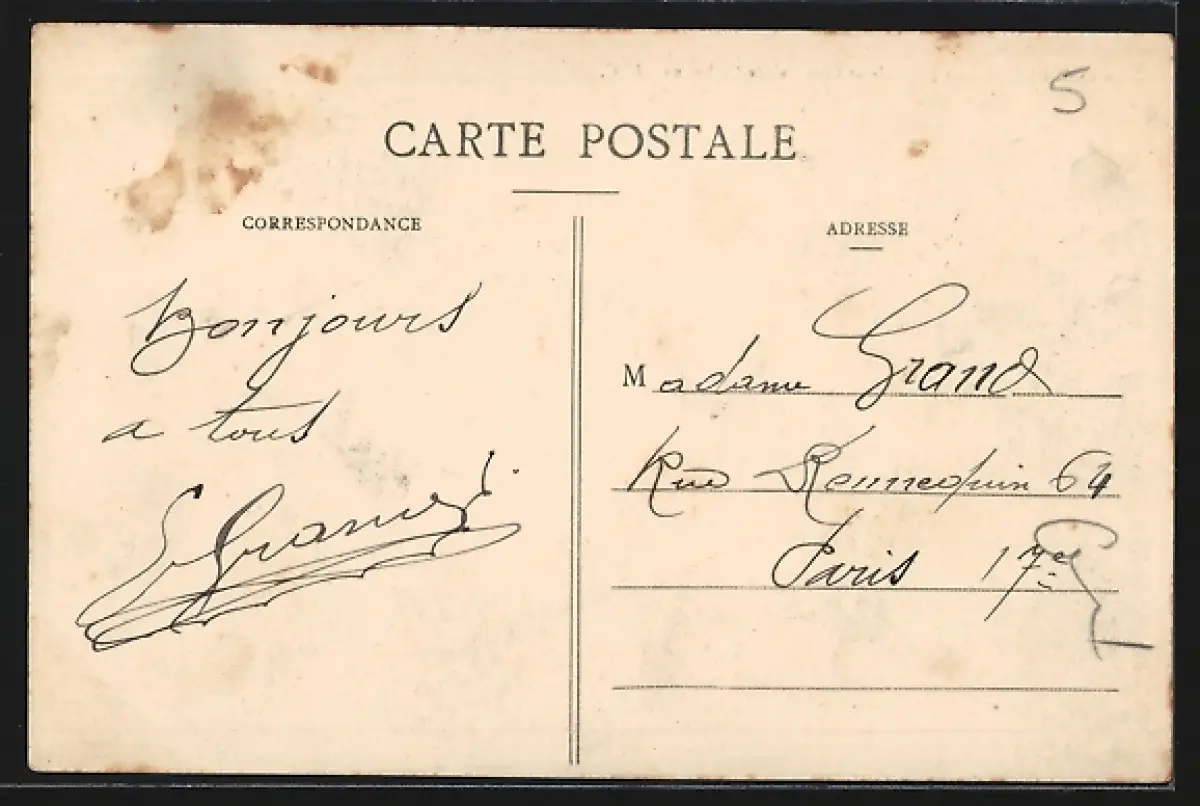 5
CARTE POSTALE
CORRESPONDANCE
Bonjours
a tous
ADRESSE
Madame Grand
Rue Rennequin 64
Paris 17e